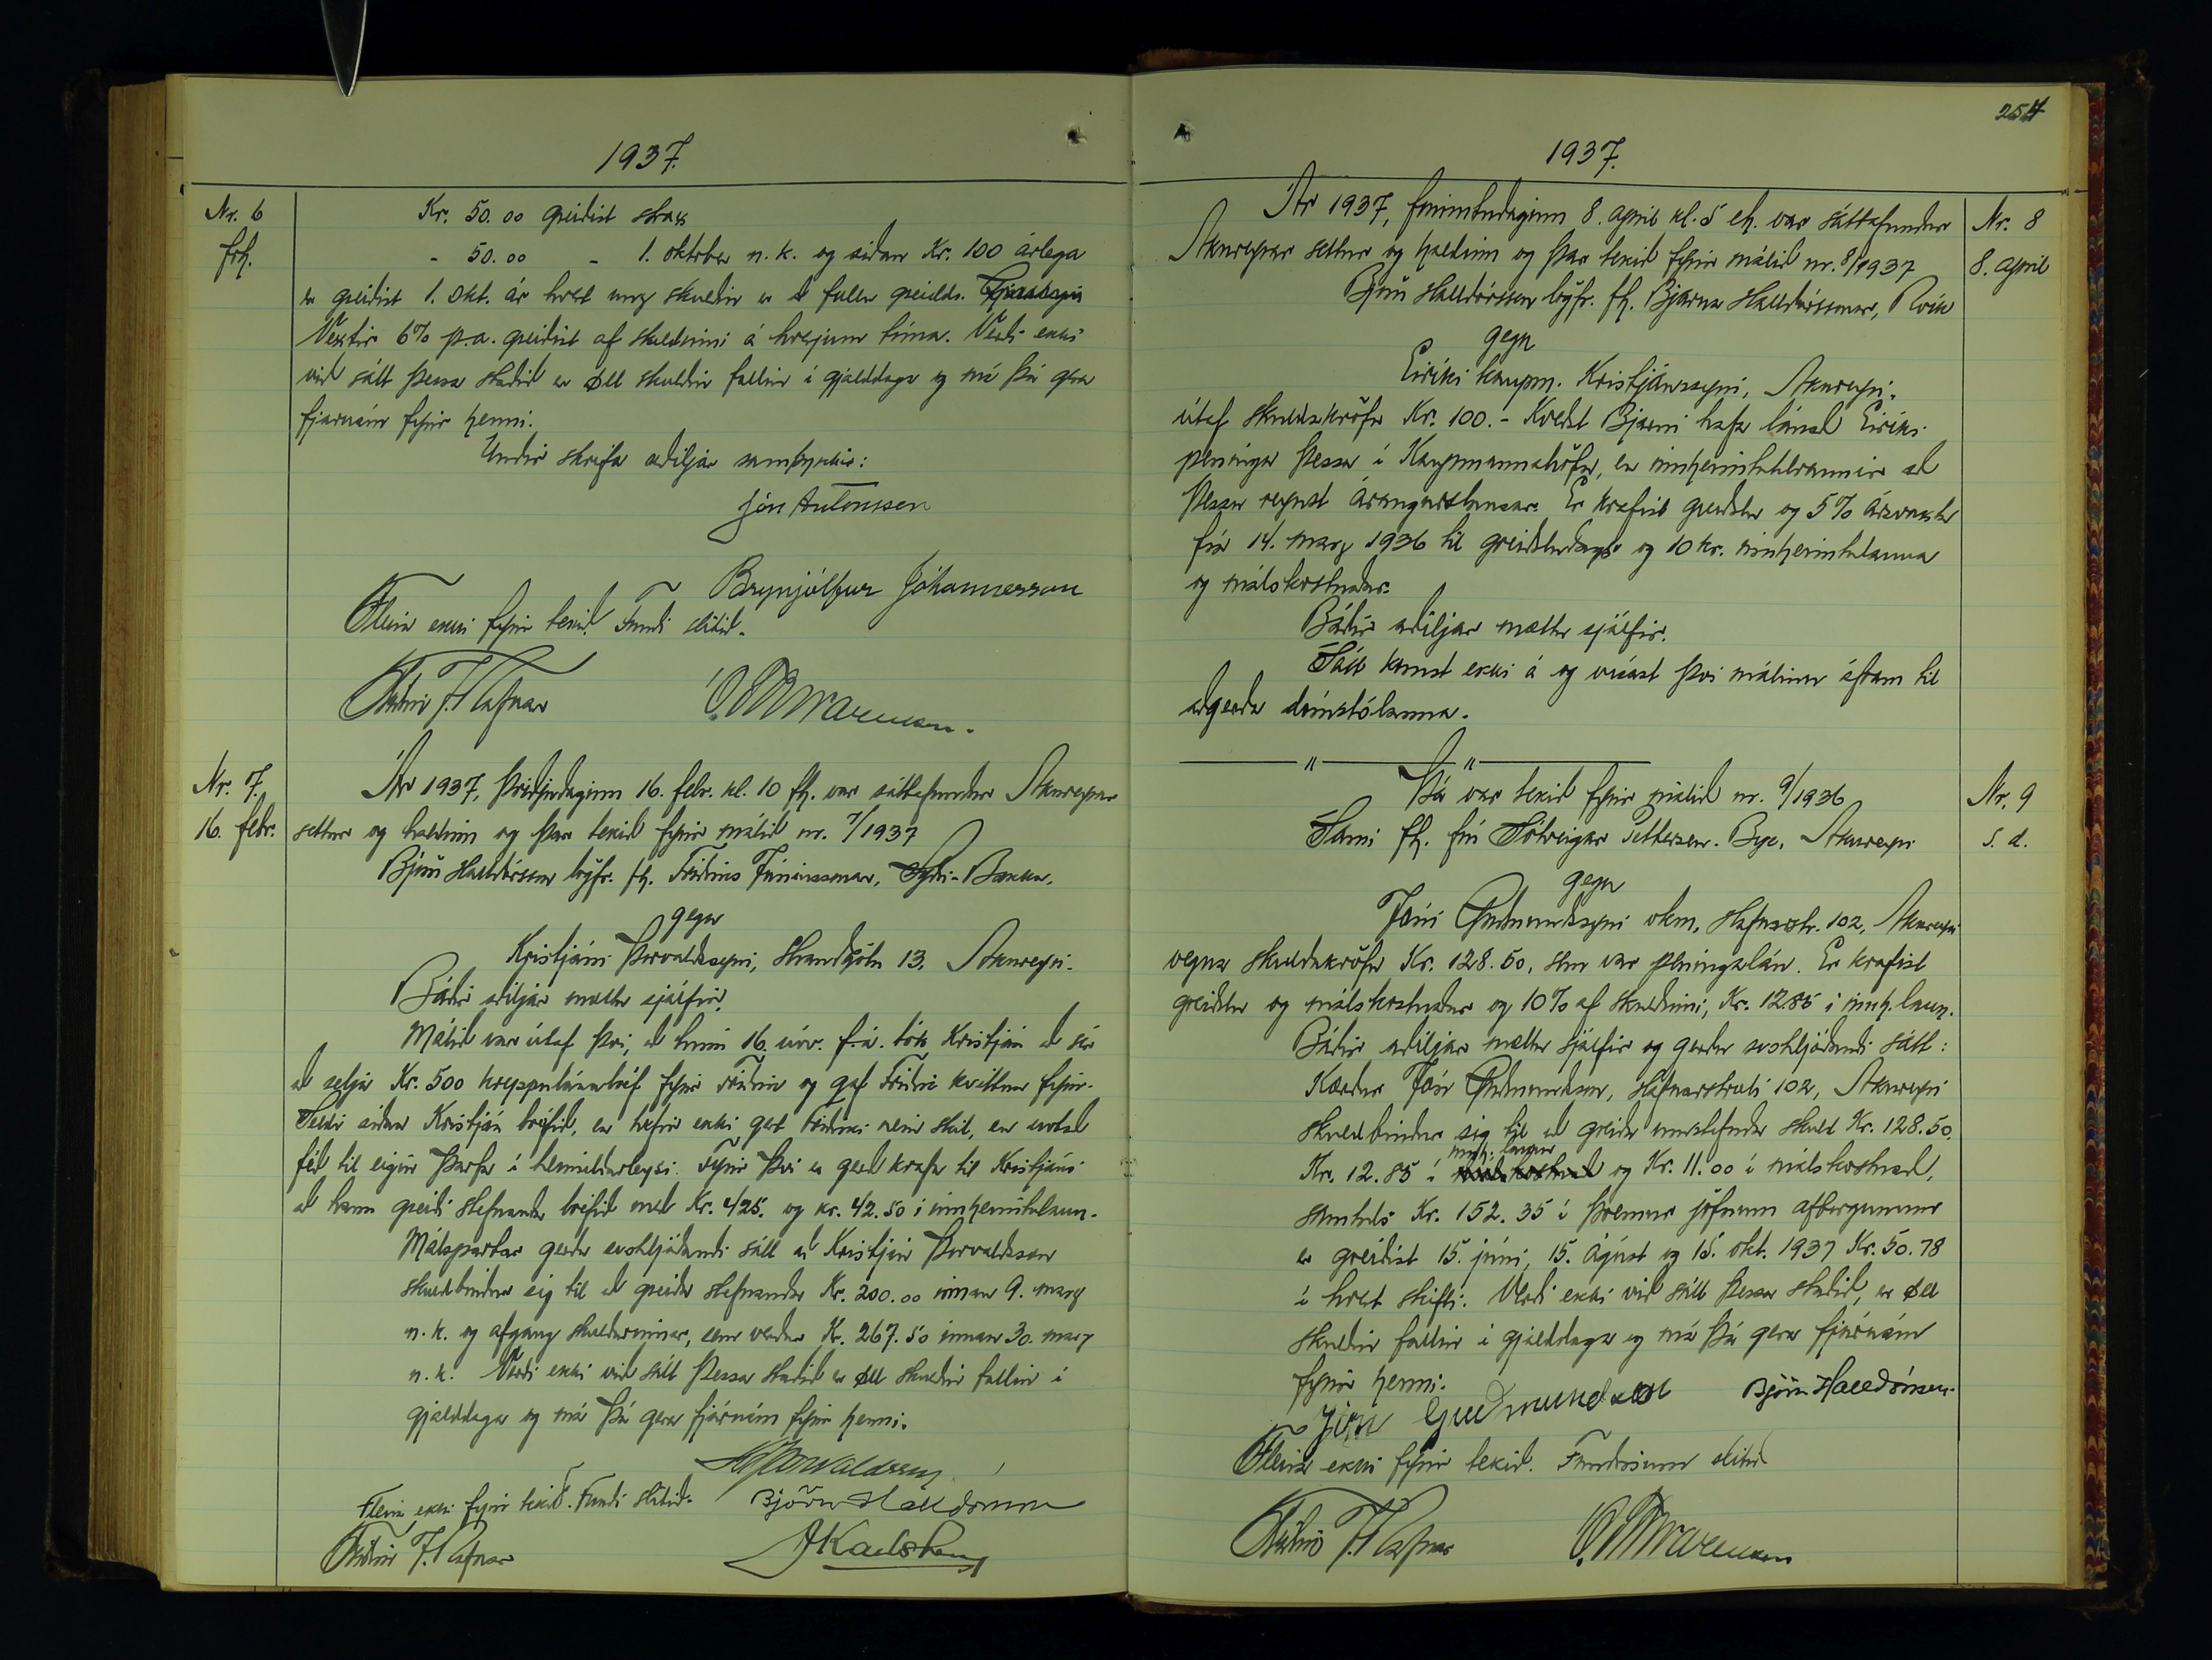 1937.
Nr. 6
frh.
Kr. 50.00 greiðist strax
- 50.00 - 1. oktober n.k. og síðan Kr. 100 árlega
er greiðist 1. okt. ár hvert unz skuldin er að fullu greidd.
Vextir 6% p.a. greiðist af skuldinni á hverjum tíma. Verði ekki
við sátt þessa staðið er öll skuldin fallin í gjalddaga og má þá gera
fjárnám fyrir henni.
Undir skrifa aðiljar samþykkir:
Jón Antonsson
Brynjólfur Jóhannesson
Fleira ekki fyrir tekið. Fundi slitið.
Friðrik J. Rafnar
Nr. 7.
16. febr.
Ár 1937, þriðjudaginn 16. febr. kl. 10 fh. var sáttafundur Akureyrar
settur og haldinn og þar tekið fyrir málið nr. 7/1937
Björn Halldórsson lögfr. fh. Friðriks Finnssonar, Syðri-Bakka,
gegn
Kristjáni Þorvaldssyni, Strandgötu 13, Akureyri.
Báðir aðiljar mættu sjálfir.
Málið var útaf því, að hinn 16. nóv. f.á. tók Kristján að sér
að selja Kr. 500 kreppulánabréf fyrir Friðrik og gaf Friðrik kvittun fyrir.
Seldi síðan Kristján bréfið, en hefir ekki gert Friðriki nein skil, en notað
féð til eigin þarfa í heimildarleysi. Fyrir því er gerð krafa til Kristjáns
að hann greiði stefnanda bréfið með Kr. 425. og kr. 42.50 í innheimtulaun.
Málspartar gerðu svohljóðandi sátt að Kristján Þorvaldsson
skuldbindur sig til að greiða stefnanda Kr. 200.00 innan 9. marz
n.k. og afgang skuldarinnar, sem verður Kr. 267.50 innan 30. marz
n.k. Verði ekki við sátt þessa staðið er öll skuldin fallin í
gjalddaga og má þá gera fjárnám fyrir henni.
Þorvaldsson
Fleira ekki fyrir tekið. Fundi slitið. Björn Halldórsson
Friðrik J. Rafnar
254
1937.
Nr. 8
8. apríl
Ár 1937, fimmtudaginn 8. apríl kl. 5 eh. var sáttafundur
Akureyrar settur og haldinn og þar tekið fyrir málið nr. 8/1937
Björn Halldórsson lögfr. fh. Bjarna Halldórssonar, Rvík
gegn
Eiríki kaupm. Kristjánssyni, Akureyri.
útaf skuldakröfu Kr. 100.- Kveðst Bjarni hafa lánað Eiríki
peninga þessa í Kaupmannahöfn, en innheimtutilraunir að
þessu reynst árangurslausar. Er krafist greiðslu og 5% ársvaxta
frá 14. marz 1936 til greiðsludags og 10 kr. innheimtulauna
og málskostnaðar.
Báðir aðiljar mættu sjálfir.
Sátt komst ekki á og vísast því málinu áfram til
aðgerða dómstólanna.
Nr. 9
s. d.
Þá var tekið fyrir málið nr. 9/1936
Sami fh. frú Sólveigar Pettersen. Bye, Akureyri
gegn
Jóni Guðmundssyni vkm, Hafnarstr. 102, Akureyri
vegna skuldakröfu Kr. 128.50, sem var peningalán. Er krafist
greiðslu og málskostnaðar og 10% af skuldinni, Kr. 12.85 í innh. laun.
Báðir aðiljar mættu sjálfir og gerðu svohljóðandi sátt:
Kærður Jón Guðmundsson, Hafnarstræti 102, Akureyri
skuldbindur sig til að greiða umstefnda skuld Kr. 128.50.
Kr. 12.85 í innh. laun og Kr. 11.00 í málskostnað,
samtals Kr. 152.35 í þremur jöfnum afborgunum
er greiðist 15. júni, 15. ágúst og 15. okt. 1937 Kr. 50.78
í hvert skifti. Verði ekki við sátt þessa staðið, er öll
skuldin fallin í gjalddaga og má þá gera fjárnám
fyrir henni.
Jón Guðmundsson Björn Halldórsson
Fleira ekki fyrir tekið. Fundinum slitið
Friðrik J. Rafnar